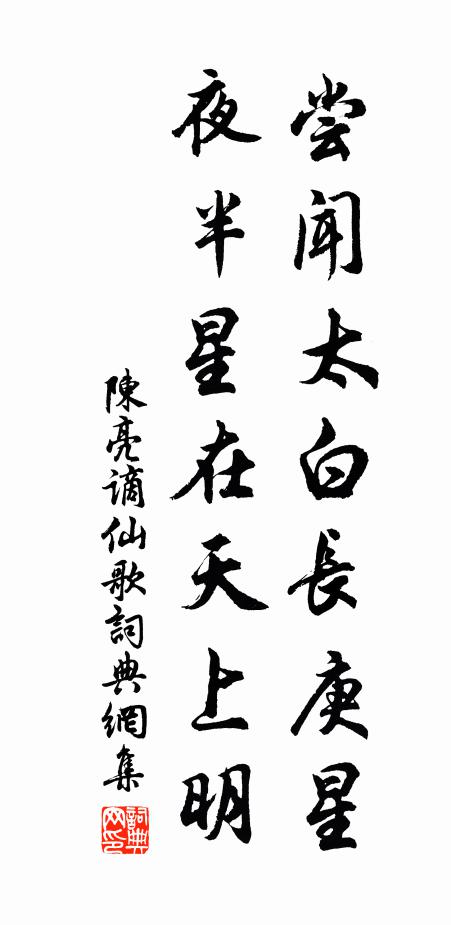 尝闻太白長庚星
夜半星在天上明
陳亮谪仙歌詞典網集
詞典网印